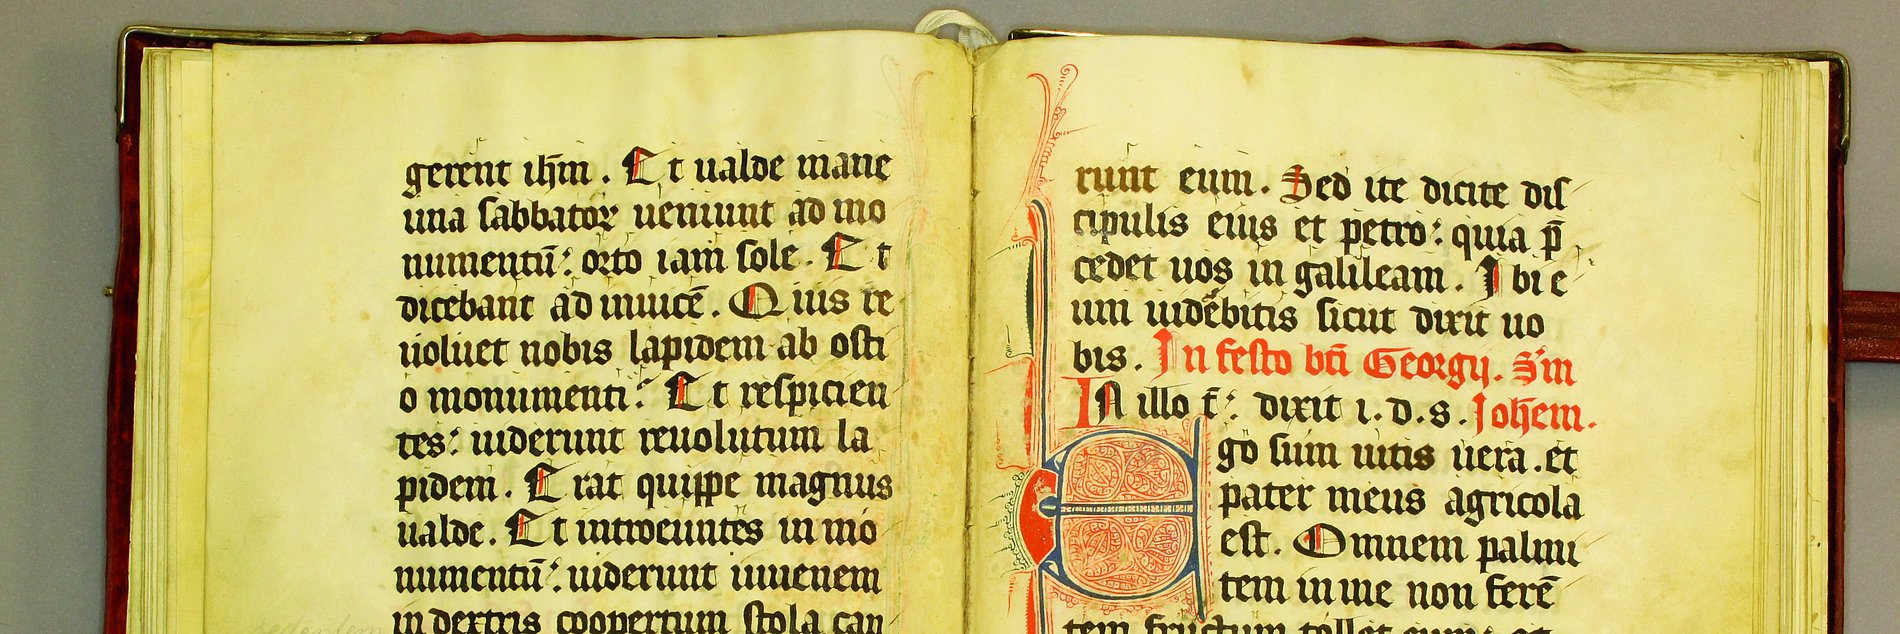 gerent ihm̅. Et ualde mane
una sabbatoꝝ ueniunt ad mo
numentū: orto iam sole. Et
dicebant ad inuicē. Quis re
uoluet nobis lapidem ab osti
o monumenti: Et respicien
tes: uiderunt reuolutum la
pidem. Erat quippe magnus
ualde. Et introeuntes in mo
numentū: uiderunt iuuenem
in dextris coopertum stola can
sedentem
runt eum. Sed ite dicite dis
cipulis eius et petro: quia p̄
cedet uos in galileam. Ibi e
um uidebitis sicut dixit uo
bis. In festo bt̄i Georgij. S̄m
In illo t̄: dixit i. d. s. Joh̄em.
Ego sum uitis uera. et
pater meus agricola
est. Omnem palmi
tem in me non ferē
tem fructum tollet eum: et